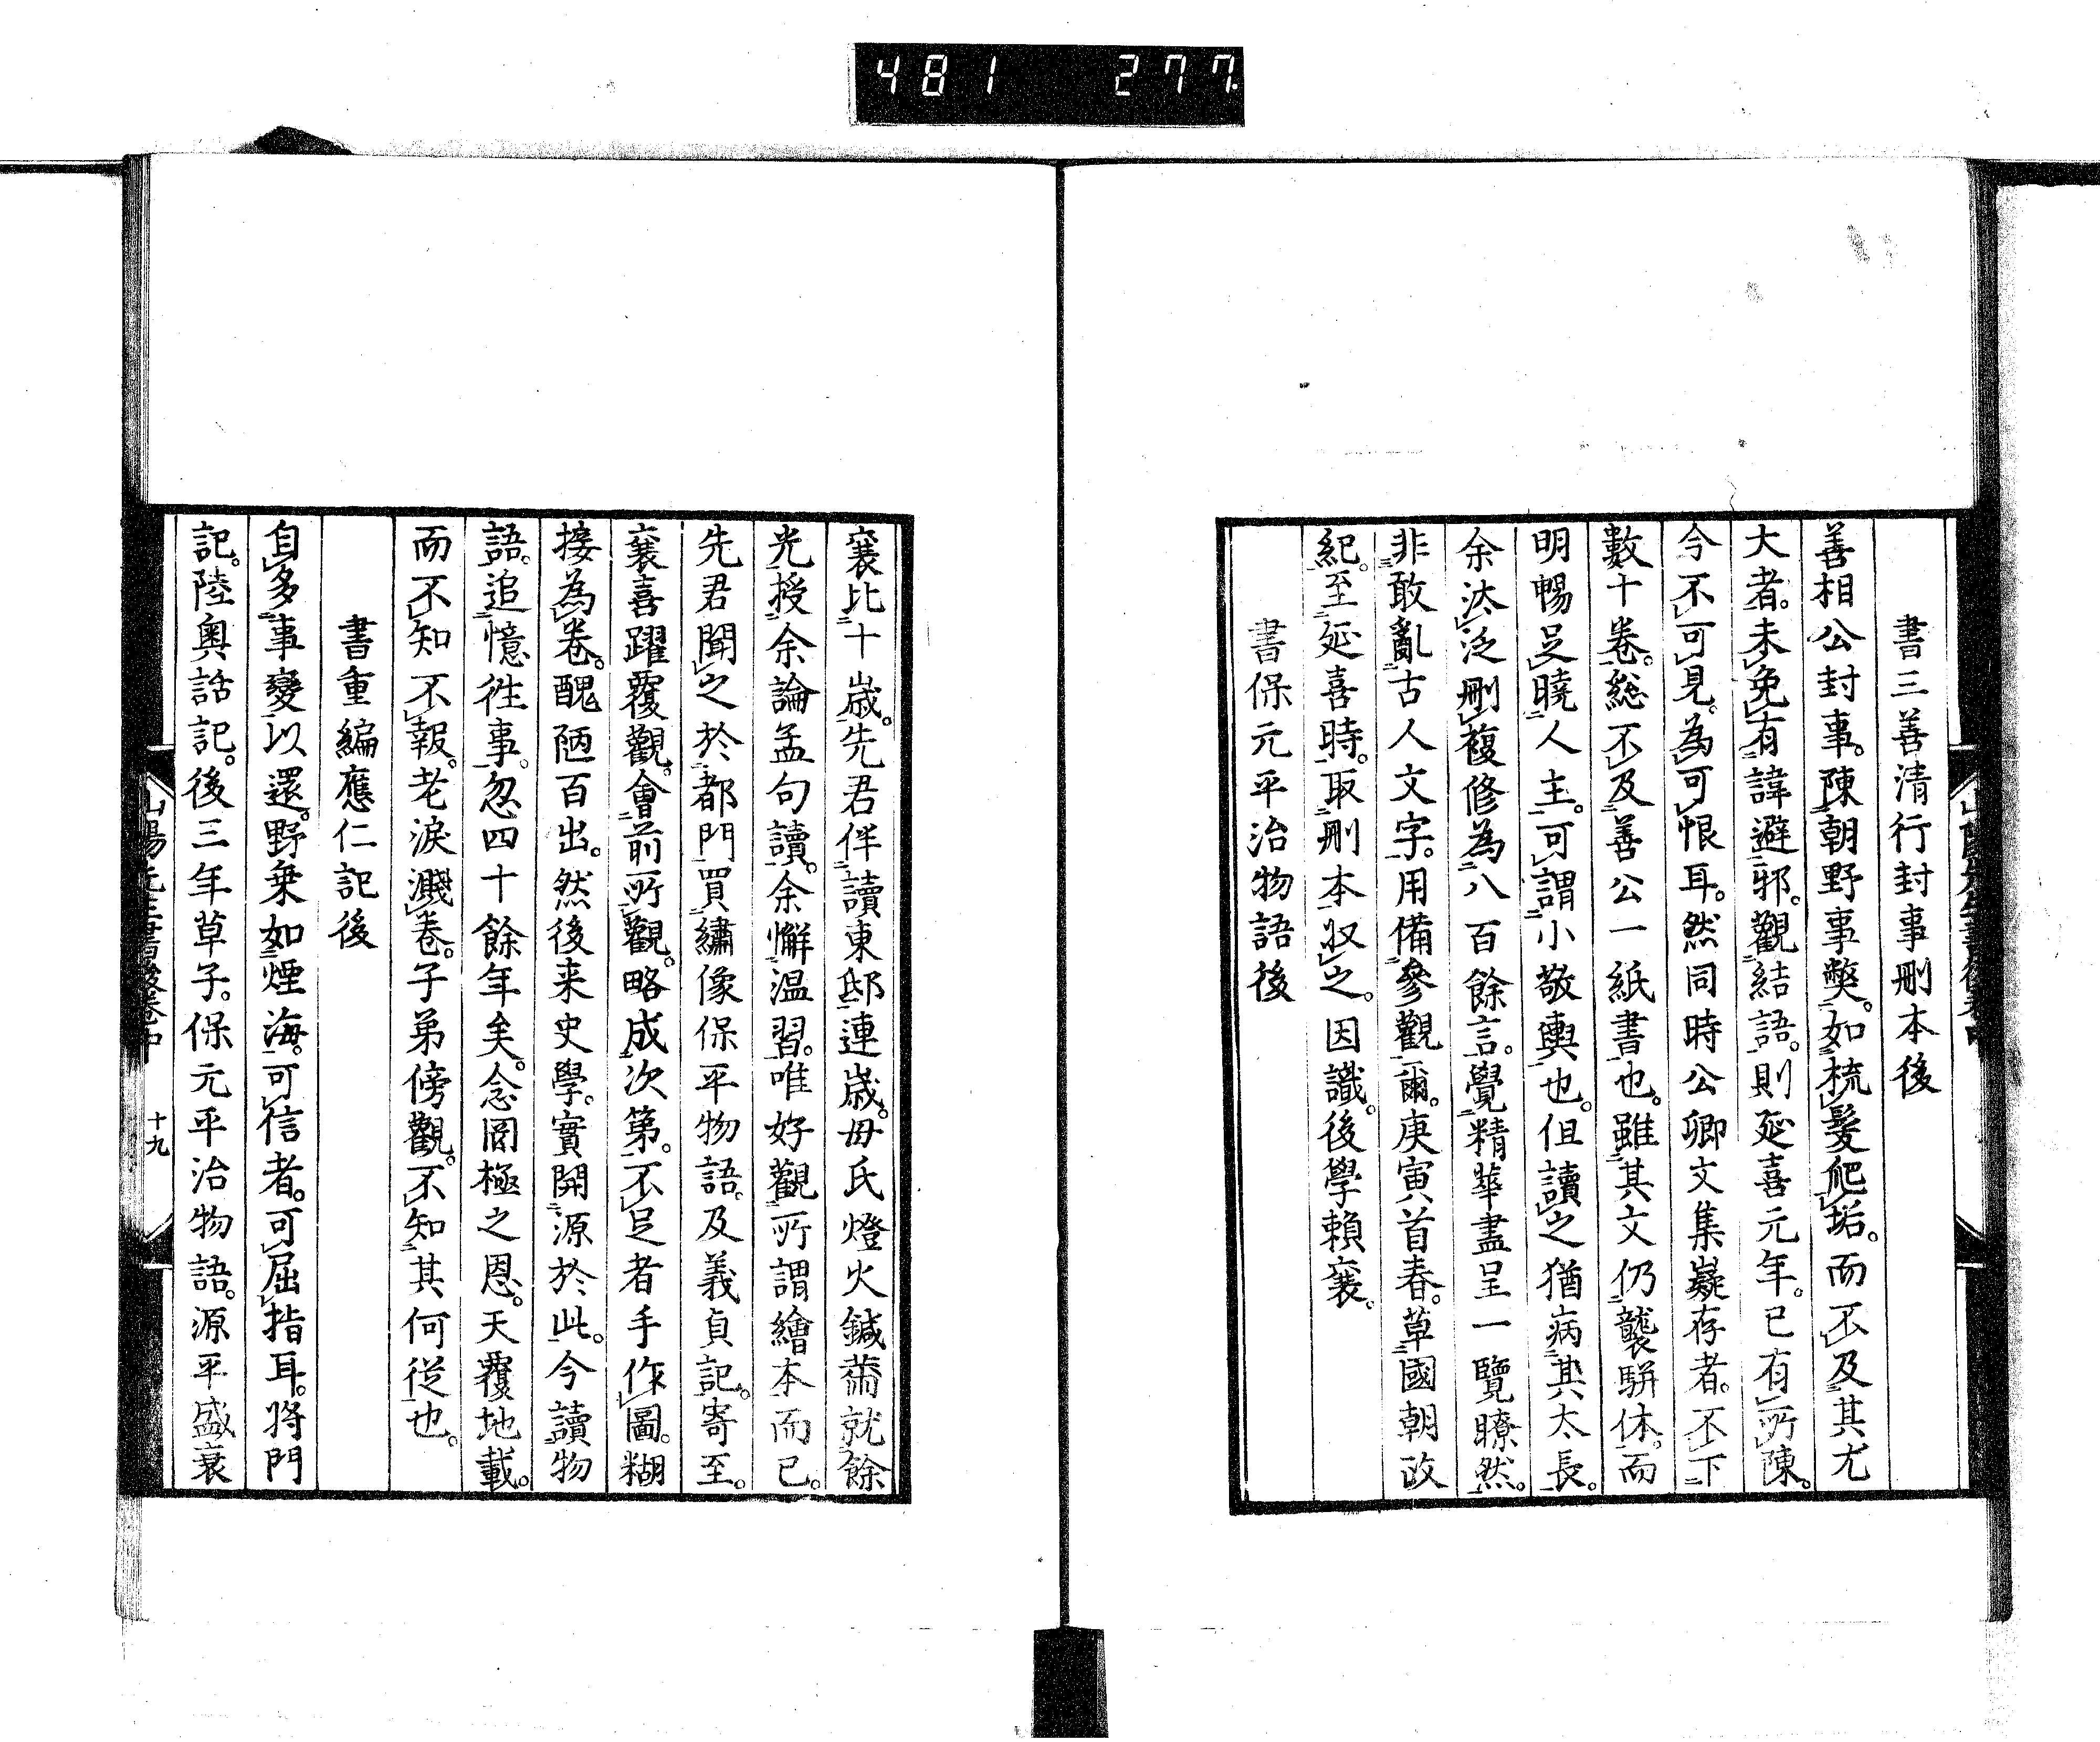 481 277
書三善清行封事刪本後
善相公封事。陳朝野事弊。如梳髮爬垢。而不及其尤
大者。未免有諱避邪。觀結語。則延喜元年。已有所陳。
今不可見。為可恨耳。然同時公卿文集嶷存者。不下
數十卷。総不及善公一紙書也。雖其文仍襲駢体。而
明暢足曉人主。可謂小敬輿也。但讀之猶病其太長。
余汰泛刪複修為八百餘言。覺精華盡呈一覽瞭然。
非敢亂古人文字。用備參觀爾。庚寅首春。草國朝政
紀。至延喜時。取刪本収之。因識。後學賴襄。
書保元平治物語後
襄比十歳。先君伴讀東邸連歳。毋氏燈火鍼黹就餘
光授余論孟句讀。余懈温習。唯好觀所謂繪本而已。
先君聞之於都門買繡像保平物語。及義貞記。寄至。
襄喜躍覆觀。會前所觀。略成次第。不足者手作圖。糊
接為卷。醜陋百出。然後来史學。實開源於此。今讀物
語。追憶徃事。忽四十餘年矣。念罔極之恩。天覆地載。
而不知不報。老淚濺卷。子弟傍觀。不知其何從也。
書重編應仁記後
自多事變以還。野乗如煙海。可信者。可屈指耳。將門
記。陸奥話記。後三年草子。保元平治物語。源平盛衰
山陽先生書後卷中 十九